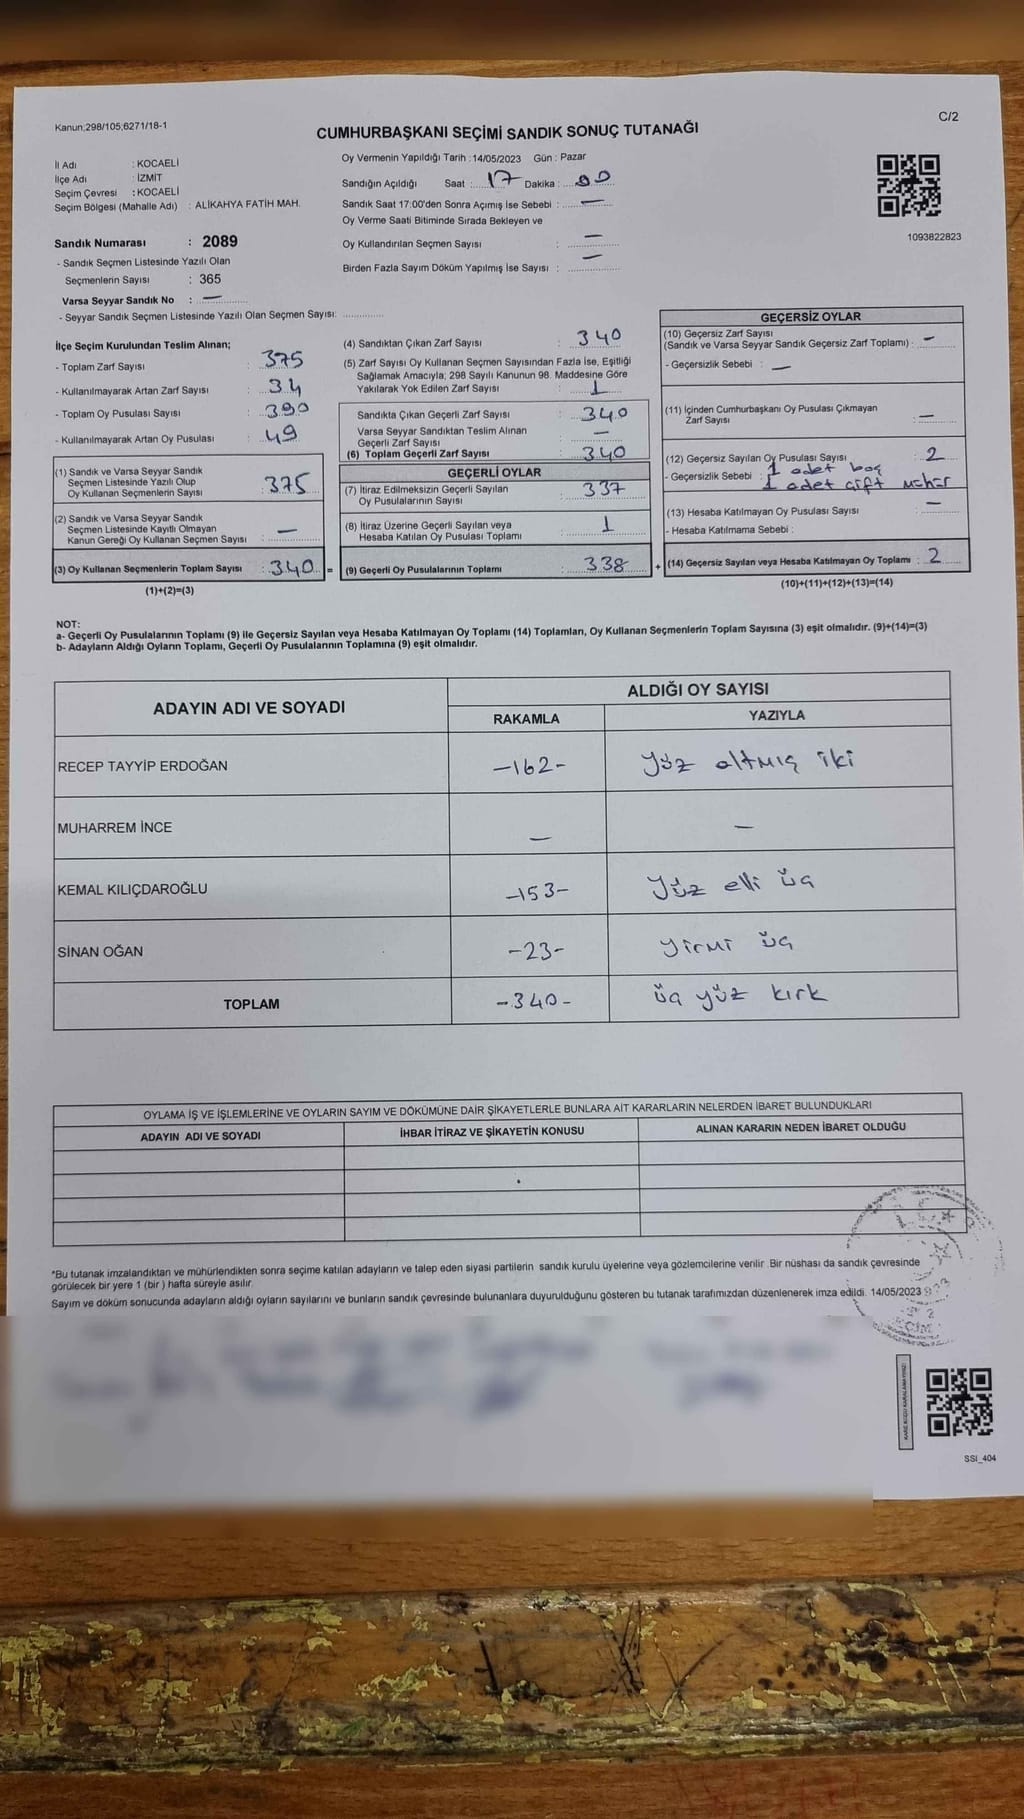 Kanun;298/105;6271/18-1
C/2
CUMHURBAŞKANI SEÇİMİ SANDIK SONUÇ TUTANAĞI
İl Adı : KOCAELİ
İlçe Adı : İZMİT
Seçim Çevresi : KOCAELİ
Seçim Bölgesi (Mahalle Adı) : ALİKAHYA FATİH MAH.
Sandık Numarası : 2089
- Sandık Seçmen Listesinde Yazılı Olan
Seçmenlerin Sayısı : 365
Varsa Seyyar Sandık No : —
- Seyyar Sandık Seçmen Listesinde Yazılı Olan Seçmen Sayısı: ............
Oy Vermenin Yapıldığı Tarih : 14/05/2023 Gün : Pazar
Sandığın Açıldığı Saat : 17 Dakika : 00
Sandık Saat 17:00'den Sonra Açımış İse Sebebi : —
Oy Verme Saati Bitiminde Sırada Bekleyen ve
Oy Kullandırılan Seçmen Sayısı : —
Birden Fazla Sayım Döküm Yapılmış İse Sayısı : —
1093822823
İlçe Seçim Kurulundan Teslim Alınan;
- Toplam Zarf Sayısı : 375
- Kullanılmayarak Artan Zarf Sayısı : 34
- Toplam Oy Pusulası Sayısı : 390
- Kullanılmayarak Artan Oy Pusulası : 49
(1) Sandık ve Varsa Seyyar Sandık
Seçmen Listesinde Yazılı Olup
Oy Kullanan Seçmenlerin Sayısı : 375
(2) Sandık ve Varsa Seyyar Sandık
Seçmen Listesinde Kayıtlı Olmayan
Kanun Gereği Oy Kullanan Seçmen Sayısı : —
(3) Oy Kullanan Seçmenlerin Toplam Sayısı : 340 =
(1)+(2)=(3)
(4) Sandıktan Çıkan Zarf Sayısı : 340
(5) Zarf Sayısı Oy Kullanan Seçmen Sayısından Fazla İse, Eşitliği
Sağlamak Amacıyla; 298 Sayılı Kanunun 98. Maddesine Göre
Yakılarak Yok Edilen Zarf Sayısı : 1
Sandıkta Çıkan Geçerli Zarf Sayısı : 340
Varsa Seyyar Sandıktan Teslim Alınan
Geçerli Zarf Sayısı : —
(6) Toplam Geçerli Zarf Sayısı : 340
GEÇERLİ OYLAR
(7) İtiraz Edilmeksizin Geçerli Sayılan
Oy Pusulalarının Sayısı : 337
(8) İtiraz Üzerine Geçerli Sayılan veya
Hesaba Katılan Oy Pusulası Toplamı : 1
(9) Geçerli Oy Pusulalarının Toplamı : 338 +
GEÇERSİZ OYLAR
(10) Geçersiz Zarf Sayısı
(Sandık ve Varsa Seyyar Sandık Geçersiz Zarf Toplamı) : —
- Geçersizlik Sebebi : —
(11) İçinden Cumhurbaşkanı Oy Pusulası Çıkmayan
Zarf Sayısı : —
(12) Geçersiz Sayılan Oy Pusulası Sayısı : 2
- Geçersizlik Sebebi : 1 adet boş
1 adet çift mühür
(13) Hesaba Katılmayan Oy Pusulası Sayısı : —
- Hesaba Katılmama Sebebi :
(14) Geçersiz Sayılan veya Hesaba Katılmayan Oy Toplamı : 2
(10)+(11)+(12)+(13)=(14)
NOT:
a- Geçerli Oy Pusulalarının Toplamı (9) ile Geçersiz Sayılan veya Hesaba Katılmayan Oy Toplamı (14) Toplamları, Oy Kullanan Seçmenlerin Toplam Sayısına (3) eşit olmalıdır. (9)+(14)=(3)
b- Adayların Aldığı Oyların Toplamı, Geçerli Oy Pusulalarının Toplamına (9) eşit olmalıdır.
ADAYIN ADI VE SOYADI
ALDIĞI OY SAYISI
RAKAMLA YAZIYLA
RECEP TAYYİP ERDOĞAN -162- Yüz altmış iki
MUHARREM İNCE — —
KEMAL KILIÇDAROĞLU -153- Yüz elli üç
SİNAN OĞAN -23- Yirmi üç
TOPLAM -340- üç yüz kırk
OYLAMA İŞ VE İŞLEMLERİNE VE OYLARIN SAYIM VE DÖKÜMÜNE DAİR ŞİKAYETLERLE BUNLARA AİT KARARLARIN NELERDEN İBARET BULUNDUKLARI
ADAYIN ADI VE SOYADI İHBAR İTİRAZ VE ŞİKAYETİN KONUSU ALINAN KARARIN NEDEN İBARET OLDUĞU
*Bu tutanak imzalandıktan ve mühürlendikten sonra seçime katılan adayların ve talep eden siyasi partilerin sandık kurulu üyelerine veya gözlemcilerine verilir. Bir nüshası da sandık çevresinde
görülecek bir yere 1 (bir ) hafta süreyle asılır.
Sayım ve döküm sonucunda adayların aldığı oyların sayılarını ve bunların sandık çevresinde bulunanlara duyurulduğunu gösteren bu tutanak tarafımızdan düzenlenerek imza edildi. 14/05/2023
SSI_404